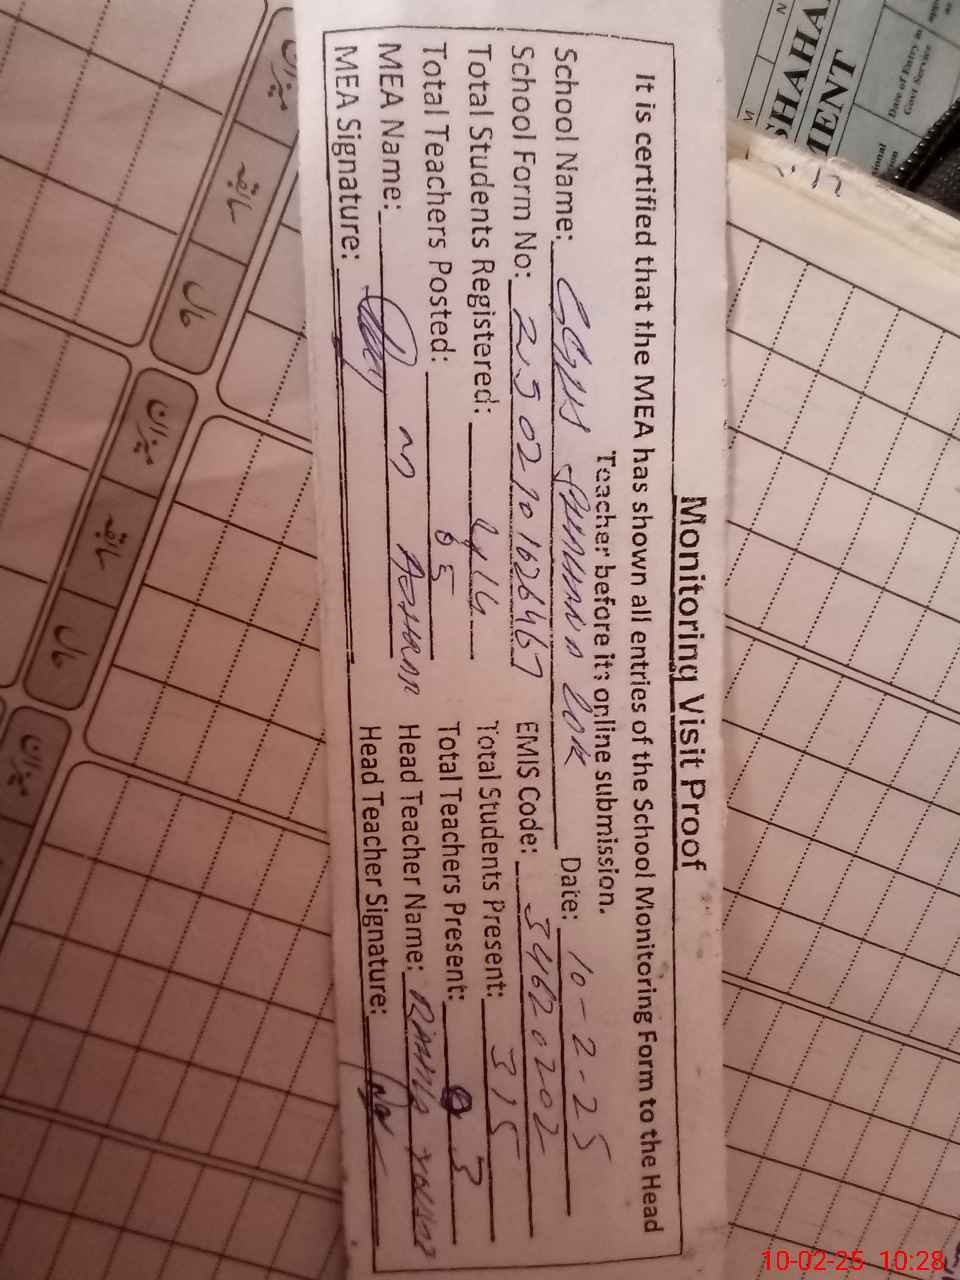 Monitoring Visit Proof
It is certified that the MEA has shown all entries of the School Monitoring Form to the Head
Teacher before its online submission.
School Name: Date: 10-2-25
School Form No: 2502101626467 EMIS Code: 34620202
Total Students Registered: Total Students Present: 315
Total Teachers Posted: 05 Total Teachers Present: 3
MEA Name: M Head Teacher Name:
MEA Signature: Head Teacher Signature:
SHAHA
MENT
میزان
سابقہ
حال
میزان
سابقہ
حال
میزان
10-02-25 10:28